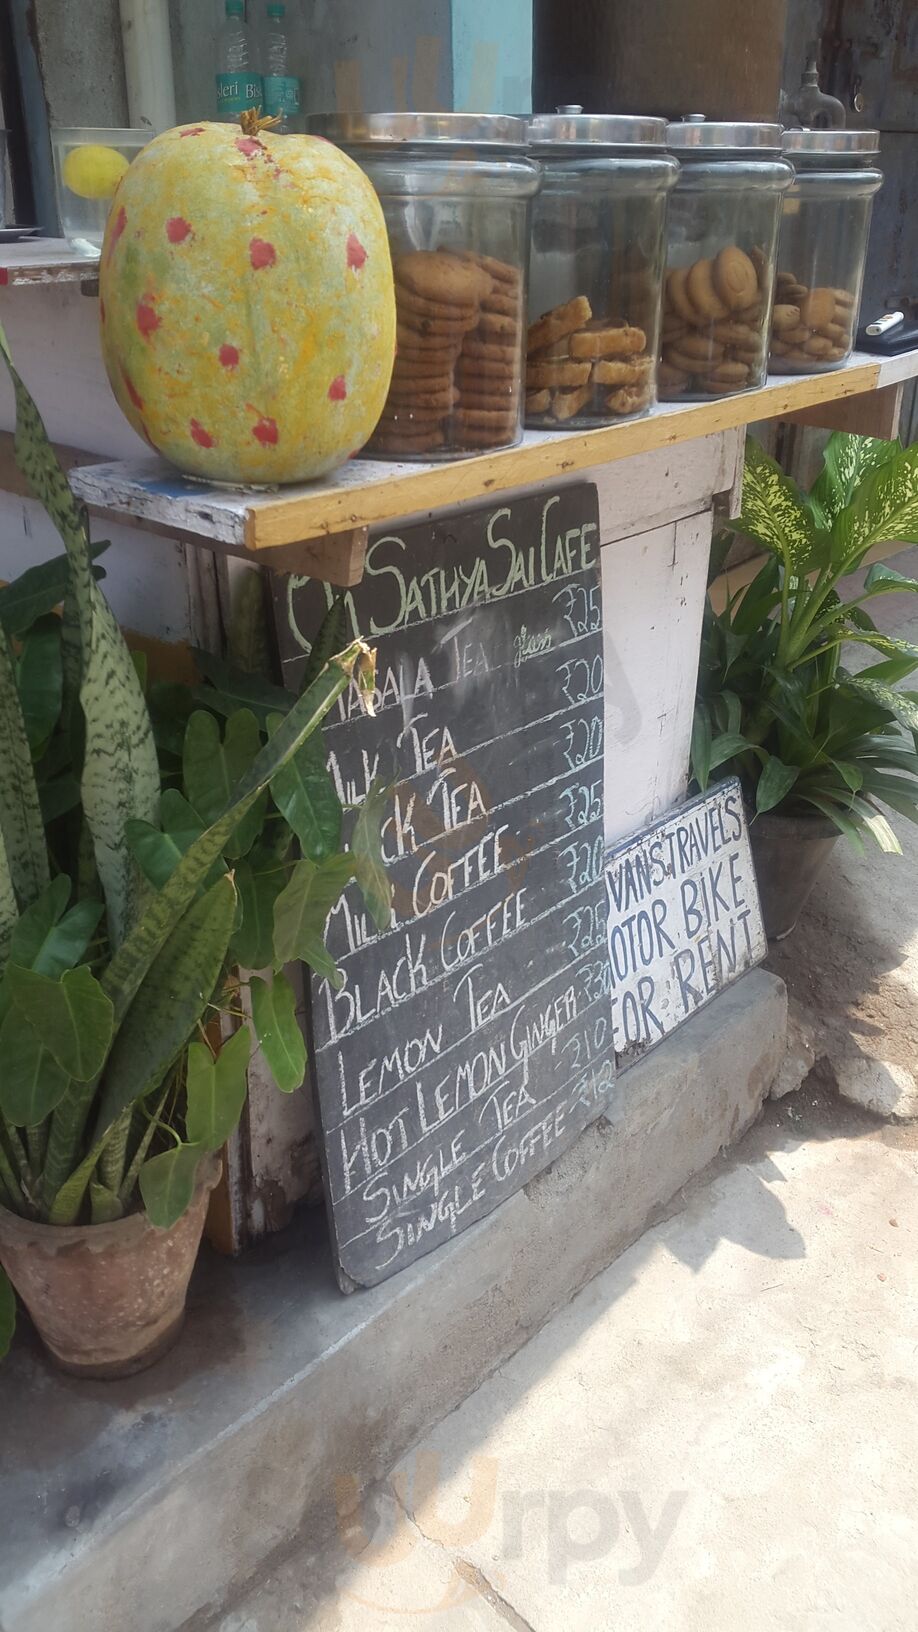 Bisleri
OM SATHYA SAI CAFE
MASALA TEA glass ₹25
MILK TEA ₹20
BLACK TEA ₹20
MILK COFFEE ₹25
BLACK COFFEE ₹20
LEMON TEA ₹25
HOT LEMON GINGER ₹30
SINGLE TEA ₹10
SINGLE COFFEE ₹12
VANS TRAVELS
OTOR BIKE
FOR RENT
wurpy